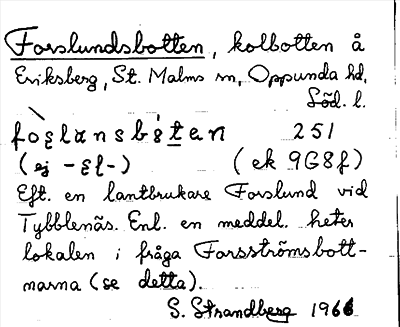 Forslundsbotten, kolbotten å
Eriksberg, St. Malms sn, Oppunda hd,
Söd. l.
foʂlansbòtan 251
(ej -ʂl-) (ek 9G8f)
Eft. en lantbrukare Forslund vid
Tybblenäs. Enl. en meddel. heter
lokalen i fråga Forsströmsbott-
narna (se detta).
S. Strandberg 1966